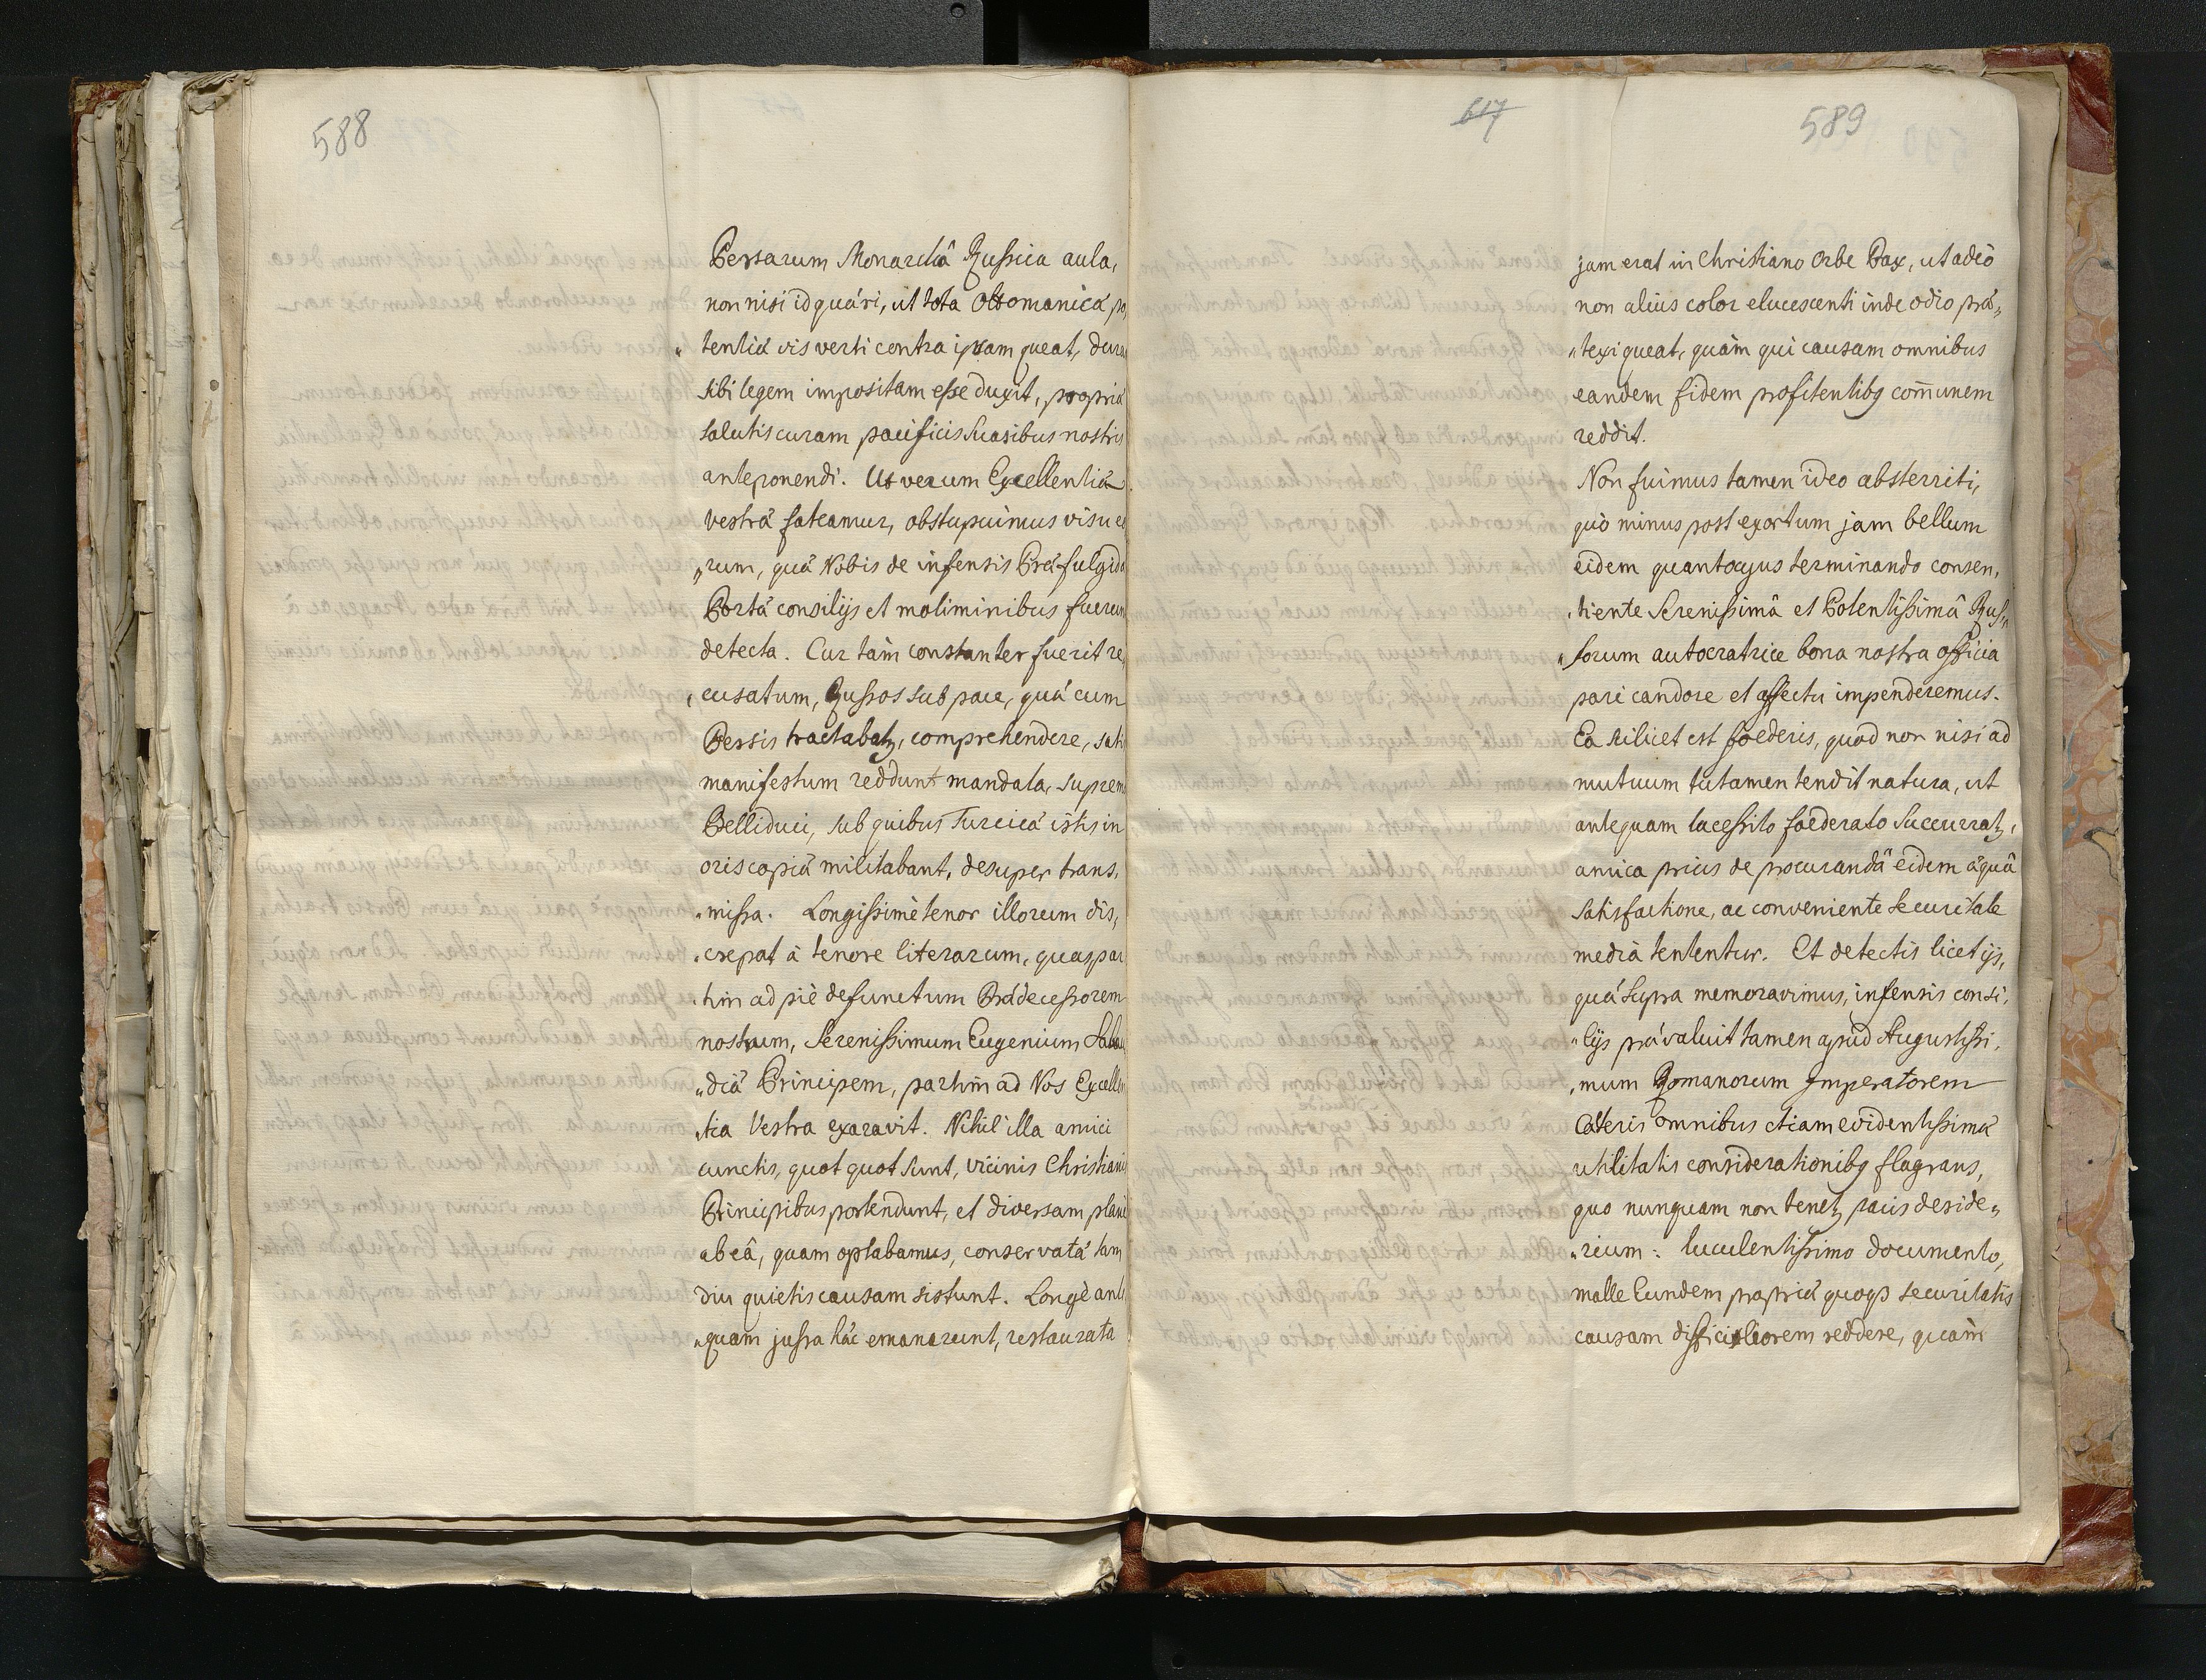 588
Persarum Monarchâ Russica aula,
non nisi id quæri, ut tota Ottomanicæ po
„tentiæ vis verti contra ipsam queat, duram
sibi legem impositam esse duxit, propriæ
salutis curam pacificis suasibus nostris
anteponendi. Ut verum Excellentiæ
vestræ fateamur, obstupuimus visu eo
„rum, quæ Nobis de infensis Præfulgidæ
Portæ consilijs et moliminibus fuerunt
detecta. Cur tàm constanter fuerit re,
„cusatum, Russos sub pace, quæ cum
Persis tractabatʒ, comprehendere, satis
manifestum reddunt mandata, supremi
Belliduci, sub quibus Turcicæ istis in
oris copiæ militabant, desuper trans,
„missa. Longissimè tenor illorum dis,
„crepat à tenore literarum, quas par
„tim ad piè defunctum Prædecessorem
nostrum, Serenissimum Eugenium Sabau
„diæ Principem, partim ad Nos Excellen
„tia Vestra exaravit. Nihil illa amici
cunctis, quot quot sunt, vicinis Christianis
Principibus portendunt, et diversam planè
ab eâ, quam optabamus, conservatæ tam
diu quietis causam sistunt. Longè ante
„quam jussa hæc emanarunt, restaurata
617
589
jam erat in Christiano Orbe Pax, ut adeò
non alius color elucescenti inde odio præ„
„texi queat, quàm qui causam omnibus
eandem fidem profitentibꝫ com̄unem
reddit.
Non fuimus tamen ideo absterriti,
quò minus post exortum jam bellum
eidem quantocyus terminando consen,
„tiente Serenissimâ et Potentissimâ Rus„
„sorum autocratrice bona nostra officia
pari candore et affectu impenderemus.
Ea scilicet est foederis, quod non nisi ad
mutuum tutamen tendit natura, ut
antequam lacessito foederato succurratʒ,
amica prius de procurandâ eidem æquâ
satisfactione, ac conveniente securitate
media tententur. Et detectis licet ijs,
quæ supra memoravimus, infensis consi,
„lijs prævaluit tamen apud Augustissi,
„mum Romanorum Imperatorem
Cæteris omnibus etiam evidentissimæ
utilitatis considerationibꝫ flagrans,
quo nunquam non tenetʒ pacis deside„
„rium: luculentissimo documento,
malle Eundem propriæ quoqꝫ securitatis
causam difficiliorem reddere, quàm